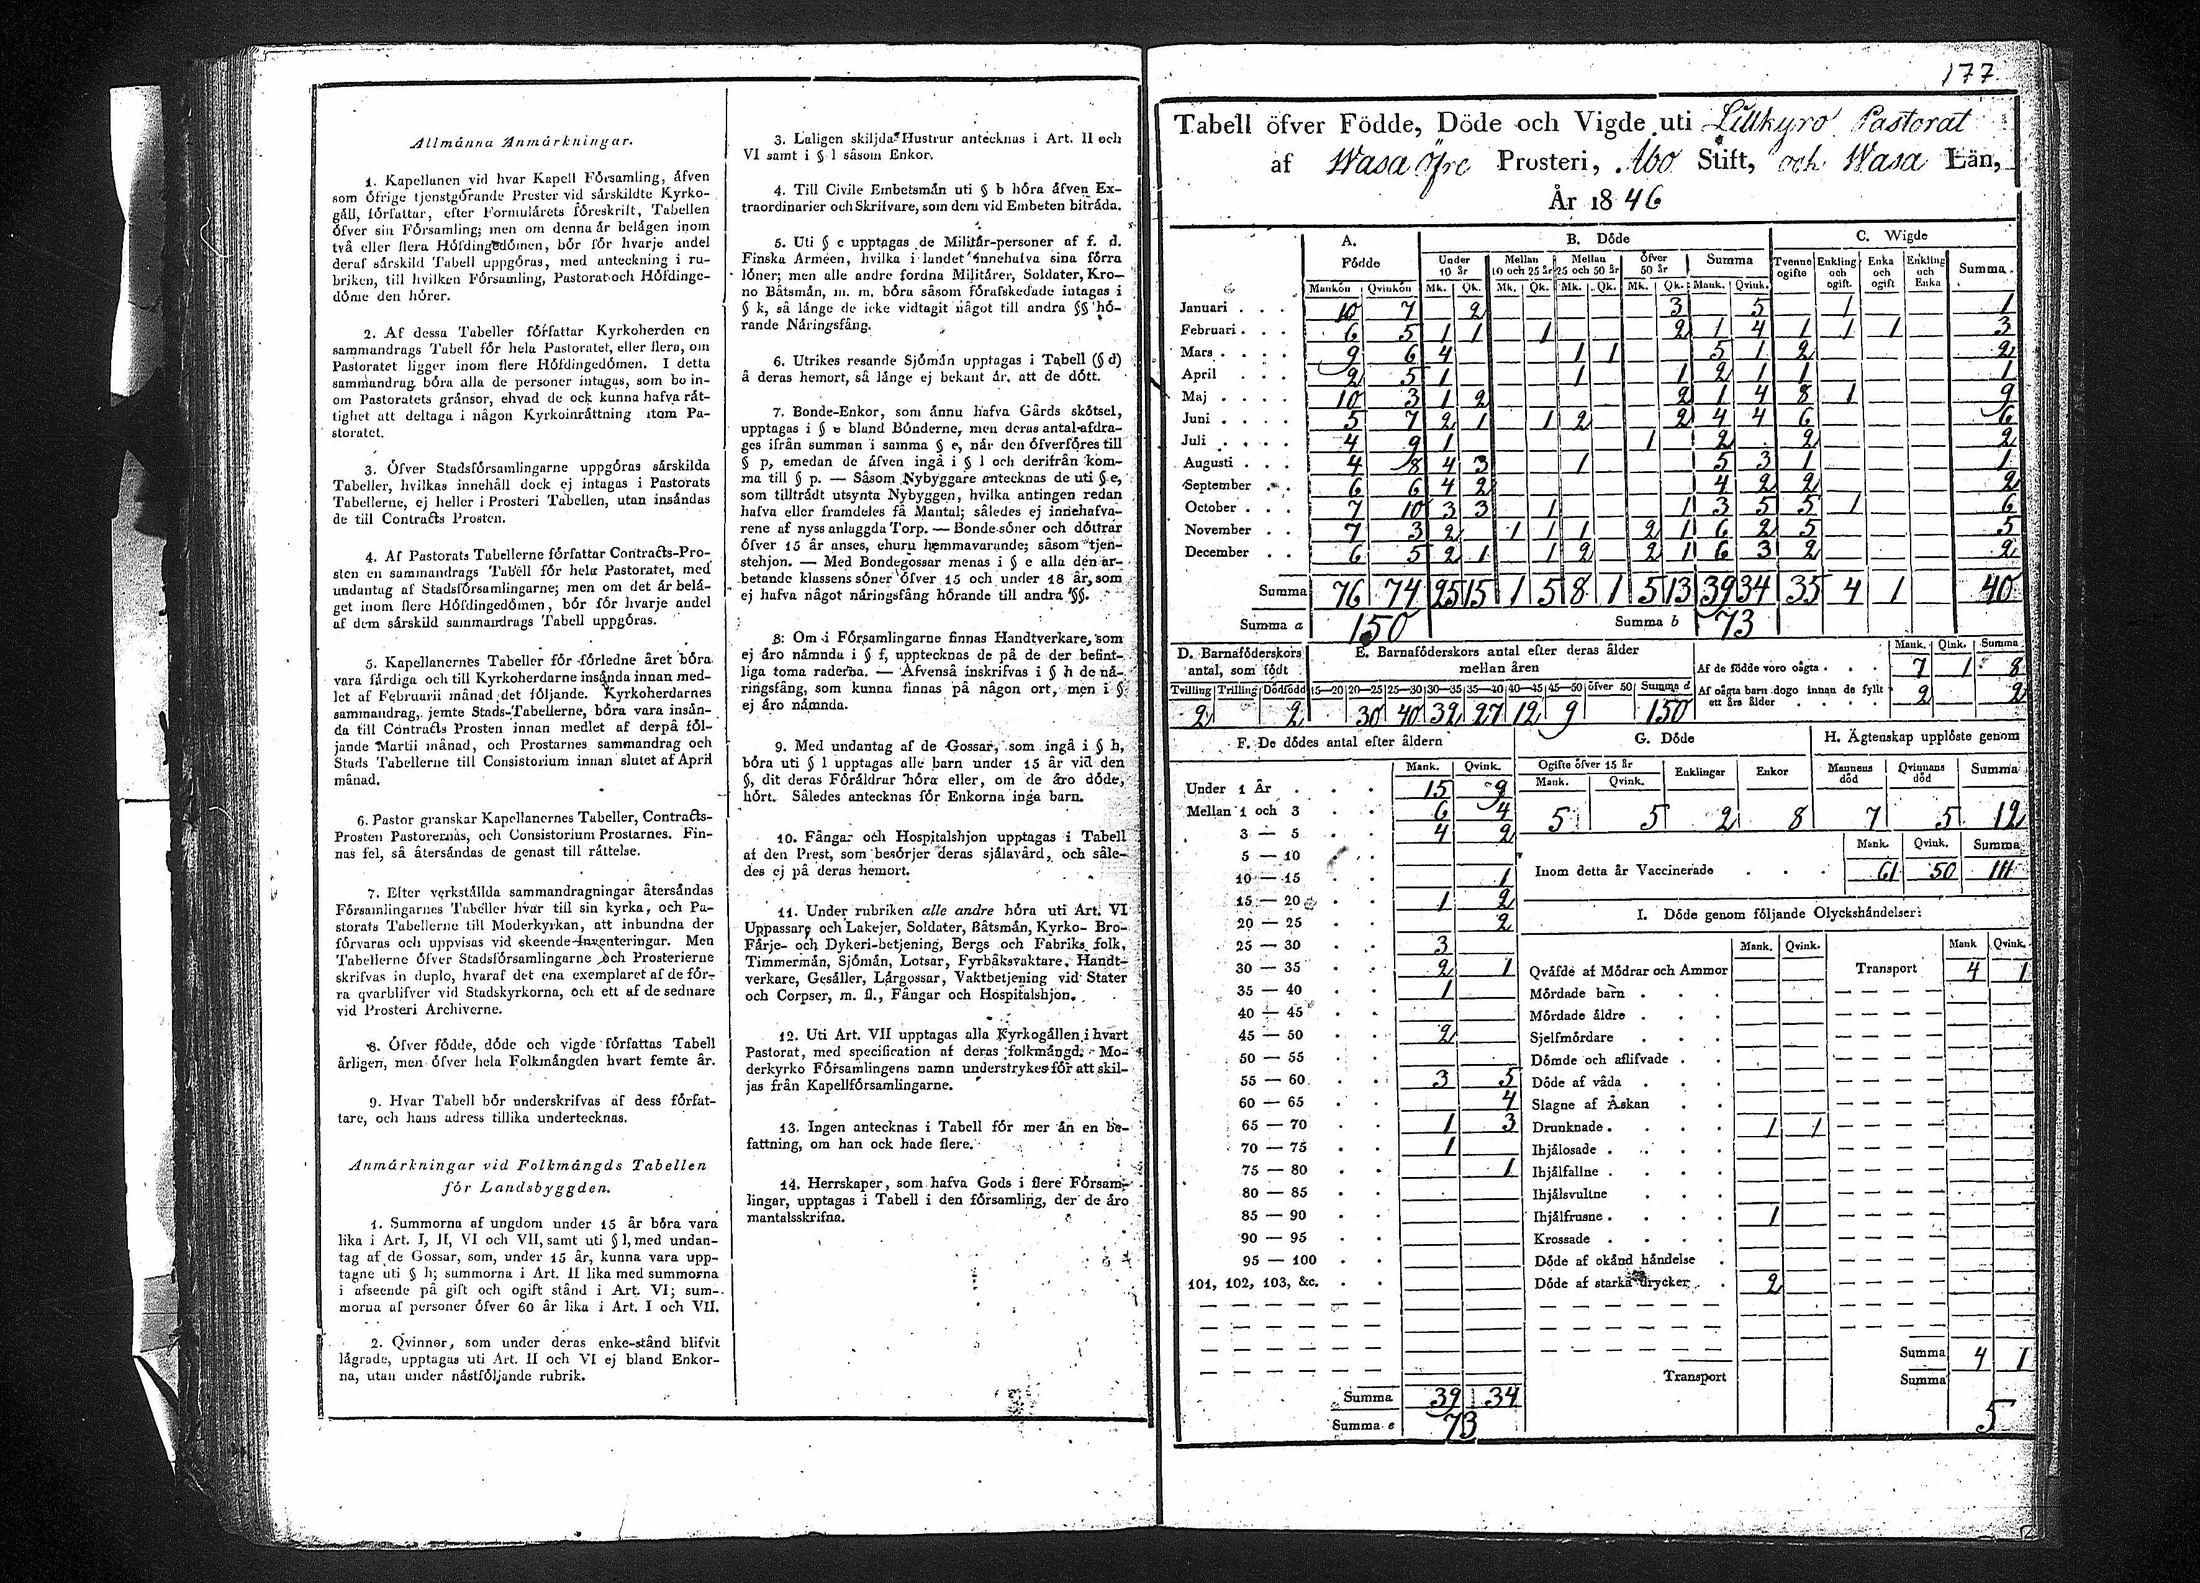 Allmånna Anmårkningar.
1. Kapellanen vid hvar Kapell Fórsamling, åfven
som ófrige tjenstgórande Prester vid sårskildte Kyrko-
gåll, fórfattar, efter Formulårets fóreskrift, Tabellen
ófver sin Fórsamling; men om denna år belågen inom
två eller flera Hófdingedómen, bór fór hvarje andel
deraf sårskild Tabell uppgóras, med anteckning i ru-
briken, till hvilken Fórsamling, Pastorat och Hófdinge-
dóme den hórer.
2. Af dessa Tabeller fórfattar Kyrkoherden en
sammandrags Tabell fór hela Pastoratet, eller flera, om
Pastoratet ligger inom flere Hófdingedómen. I detta
sammandrag bóra alla de personer intagas, som bo in-
om Pastoratets grånsor, ehvad de ock kunna hafva råt-
tighet att deltaga i någon Kyrkoinråttning utom Pa-
storatet.
3. Ófver Stadsfórsamlingarne uppgóras sårskilda
Tabeller, hvilkas innehåll dock ej intages i Pastorats
Tabellerne, ej heller i Prosteri Tabellen, utan insåndas
de till Contracts Prosten.
4. Af Pastorats Tabellerne fórfattar Contracts-Pro-
sten en sammandrags Tabell fór hela Pastoratet, med
undantag af Stadsfórsamlingarne; men om det år belå-
get inom flere Hófdingedómen, bór fór hvarje andel
af dem sårskild sammandrags Tabell uppgóras.
5. Kapellanernes Tabeller fór fórledne året bóra
vara fårdiga och till Kyrkoherdarne insånda innan med-
let af Februarii månad det fóljande. Kyrkoherdarnes
sammandrag, jemte Stads-Tabellerne, bóra vara insån-
da till Contracts Prosten innan medlet af derpå fól-
jande Martii månad, och Prostarnes sammandrag och
Stads Tabellerne till Consistorium innan slutet af April
månad.
6. Pastor granskar Kapellanernes Tabeller, Contracts-
Prosten Pastorernas, och Consistorium Prostarnes. Fin-
nas fel, så återsåndas de genast till råttelse.
7. Efter verkstållda sammandragningar återsåndas
Fórsamlingarnes Tabeller hvar till sin kyrka, och Pa-
storats Tabellerne till Moderkyrkan, att inbundna der
fórvaras och uppvisas vid skeende Inventeringar. Men
Tabellerne ófver Stadsfórsamlingarne och Prosterierne
skrifvas in duplo, hvaraf det ena exemplaret af de fór-
ra qvarblifver vid Stadskyrkorna, och ett af de sednare
vid Prosteri Archiverne.
8. Ófver fódde, dóde och vigde fórfattas Tabell
årligen, men ófver hela Folkmångden hvart femte år.
9. Hvar Tabell bór underskrifvas af dess fórfat-
tare, och hans adress tillika undertecknas.
Anmårkningar vid Folkmångds Tabellen
fór Landsbyggden.
1. Summorna af ungdom under 15 år bóra vara
lika i Art. I, II, VI och VII, samt uti § l, med undan-
tag af de Gossar, som, under 15 år, kunna vara upp-
tagne uti § h; summorna i Art. II lika med summorna
i afseende på gift och ogift stånd i Art. VI; sum-
morna af personer ófver 60 år lika i Art. I och VII.
2. Qvinnor, som under deras enke-stånd blifvit
lågrade, upptagas uti Art. II och VI ej bland Enkor-
na, utan under nåstfóljande rubrik.
3. Laligen skiljda Hustrur antecknas i Art. II och
VI samt i § l såsom Enkor.
4. Till Civile Embetsmån uti § b hóra åfven Ex-
traordinarier och Skrifvare, som dem vid Embeten bitråda.
5. Uti § c upptagas de Militår-personer af f. d.
Finska Armeen, hvilka i landet innehafva sina fórra
lóner; men alle andre fordna Militårer, Soldater, Kro-
no Båtsmån, m. m. bóra såsom fórafskedade intagas i
§ k, så långe de icke vidtagit något till andra §§ hó-
rande Nåringsfång.
6. Utrikes resande Sjómån upptagas i Tabell (§ d)
å deras hemort, så långe ej bekant år, att de dótt.
7. Bonde-Enkor, som ånnu hafva Gårds skótsel,
upptagas i § e bland Bónderne, men deras antal afdra-
ges ifrån summan i samma § e, når den ófverfóres till
§ p, emedan de åfven ingå i § l och derifrån kom-
ma till § p. — Såsom Nybyggare antecknas de uti § e,
som tilltrådt utsynta Nybyggen, hvilka antingen redan
hafva eller framdeles få Mantal; således ej innehafva-
rene af nyss anlaggda Torp. — Bonde-sóner och dóttrar
ófver 15 år anses, ehuru hemmavarande, såsom tjen-
stehjon. — Med Bondegossar menas i § e alla den ar-
betande klassens sóner ófver 15 och under 18 år, som
ej hafva något nåringsfång hórande till andra §§.
8. Om i Fórsamlingarne finnas Handtverkare, som
ej åro nåmnda i § f, upptecknas de på de der befint-
liga toma raderna. — Åfvenså inskrifvas i § h de nå-
ringsfång, som kunna finnas på någon ort, men i §
ej åro nåmnda.
9. Med undantag af de Gossar, som ingå i § h,
bóra uti § l upptagas alle barn under 15 år vid den
§, dit deras Fóråldrar hóra eller, om de åro dóde,
hórt. Således antecknas fór Enkorna inga barn.
10. Fångar och Hospitalshjon upptagas i Tabell
af den Prest, som besórjer deras sjålavård, och såle-
des ej på deras hemort.
11. Under rubriken alle andre hóra uti Art. VI
Uppassare och Lakejer, Soldater, Båtsmån, Kyrko- Bro-
Fårje- och Dykeri-betjening, Bergs och Fabriks folk,
Timmermån, Sjómån, Lotsar, Fyrbåksvaktare, Handt-
verkare, Gesåller, Lårgossar, Vaktbetjening vid Stater
och Corpser, m. fl., Fångar och Hospitalshjon.
12. Uti Art. VII upptagas alla Kyrkogållen i hvart
Pastorat, med specification af deras folkmångd. Mo-
derkyrko Fórsamlingens namn understrykes fór att skil-
jas från Kapellfórsamlingarne.
13. Ingen antecknas i Tabell fór mer ån en be-
fattning, om han ock hade flere.
14. Herrskaper, som hafva Gods i flere Fórsam-
lingar, upptagas i Tabell i den fórsamling, der de åro
mantalsskrifna.
177.
Tabell öfver Födde, Döde och Vigde uti Lillkyro Pastorat
af Wasa öfre Prosteri, Åbo Stift, och Wasa Län,
År 1846
A. Fódde B. Dóde C. Wigde
Under 10 år Mellan 10 och 25 år Mellan 25 och 50 år Ófver 50 år Summa Tvenne ogifte Enkling och ogift. Enka och ogift Enkling och Enka Summa.
Mankón Qvinkón Mk. Qk. Mk. Qk. Mk. Qk. Mk. Qk. Mank. Qvink.
Januari 10 7 2 3 5 1 1
Februari 6 5 1 1 1 2 1 4 1 1 1 3
Mars 9 6 4 1 1 5 1 2 2
April 2 5 1 1 1 2 1 1 1
Maj 10 3 1 2 2 1 4 8 1 9
Juni 5 7 2 1 1 2 2 4 4 6 6
Juli 4 9 1 1 2 2 2
Augusti 4 8 4 3 1 5 3 1 1
September 6 6 4 2 4 2 2 2
October 7 10 3 3 1 1 3 5 5 1 6
November 7 3 2 1 1 1 2 1 6 2 5 5
December 6 5 2 1 1 2 2 1 6 3 2 2
Summa 76 74 25 15 1 5 8 1 5 13 39 34 35 4 1 40
Summa a 150 Summa b 73
D. Barnafóderskors antal, som fódt E. Barnafóderskors antal efter deras ålder mellan åren
Mank. Qink. Summa
Af de fódde voro oågta 7 1 8
Af oågta barn dogo innan de fyllt ett års ålder 2 2
Tvilling Trilling Dódfódd 15—20 20—25 25—30 30—35 35—40 40—45 45—50 ófver 50 Summa d
2 2 30 40 32 27 12 9 150
F. De dódes antal efter åldern
Mank. Qvink.
Under 1 År 15 9
Mellan 1 och 3 6 4
3 — 5 4 2
5 — 10
10 — 15 1
15 — 20 1 2
20 — 25 2
25 — 30 3
30 — 35 2 1
35 — 40 1
40 — 45
45 — 50 2
50 — 55
55 — 60 3 5
60 — 65 4
65 — 70 1 3
70 — 75 1
75 — 80 1
80 — 85
85 — 90
90 — 95
95 — 100
101, 102, 103, &c.
Summa 39 34
Summa e 73
G. Dóde H. Ägtenskap upplóste genom
Ogifte ófver 15 år Enklingar Enkor Mannens dód Qvinnans dód Summa
Mank. Qvink.
5 5 2 8 7 5 12
Mank. Qvink. Summa
Inom detta år Vaccinerade 61 50 111
I. Dóde genom fóljande Olyckshåndelser:
Mank. Qvink. Mank Qvink.
Qvåfde af Módrar och Ammor Transport 4 1
Mórdade barn
Mórdade åldre
Sjelfmórdare
Dómde och aflifvade
Dóde af våda
Slagne af Åskan
Drunknade 1 1
Ihjålosade
Ihjålfallne
Ihjålsvultne
Ihjålfrusne 1
Krossade
Dóde af okånd håndelse
Dóde af starka drycker 2
Summa 4 1
Transport Summa
5